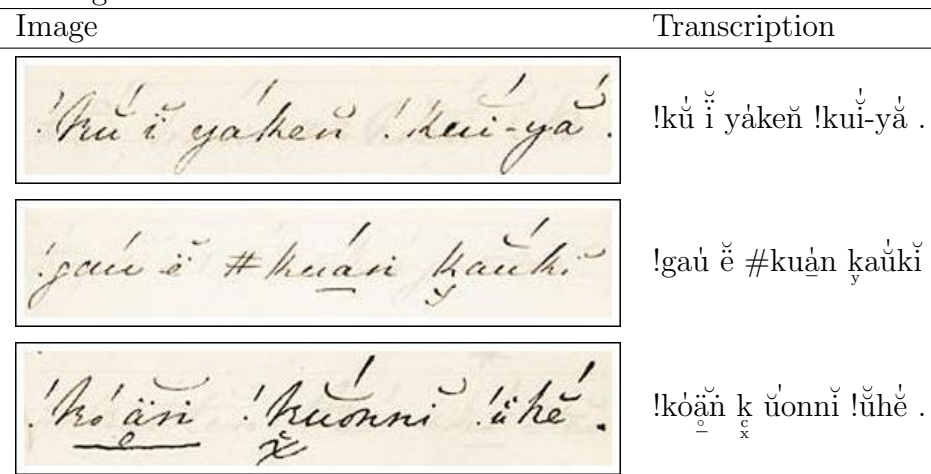 Image Transcription
!kŭ̍ ï̆ ya̍ken̆ !kuĭ̯̍-yă̍ . !kŭ̍ ï̆ ya̍ken̆ !kuĭ̍-yă̍ .
!gau̍ ë̆ #kua̱̍n k̬aŭ̍kĭ !gau̍ ë̆ #kua̱̍n kᵧaŭ̍kĭ
!ko̍ä̱̊̆n̍ !kŭ̍onnĭ !ŭ̈hĕ̍ . !ko̍ä̱̥̆ṅ k͓ ŭ̍onnĭ !ŭ̈hĕ̍ .